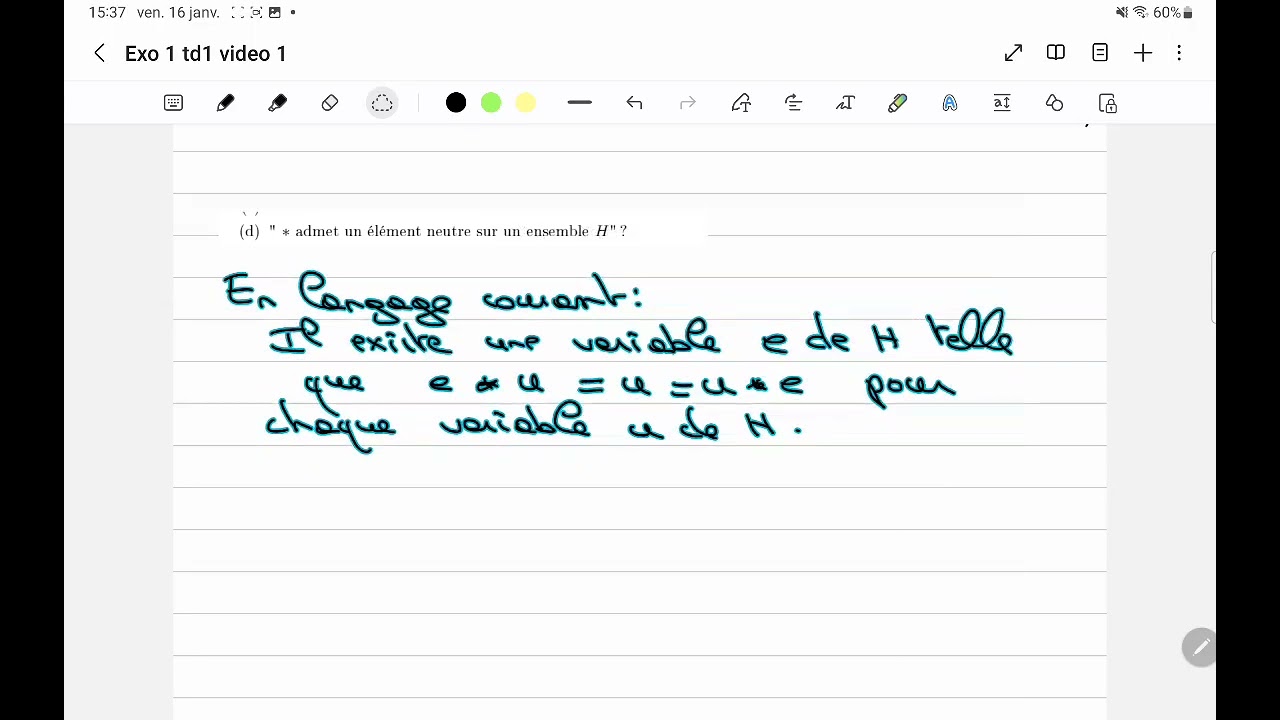 15:37 ven. 16 janv.
60%
Exo 1 td1 video 1
(d) " ∗ admet un élément neutre sur un ensemble H" ?
En langage courant:
Il existe une variable e de H telle
que e * u = u = u * e pour
chaque variable u de H.